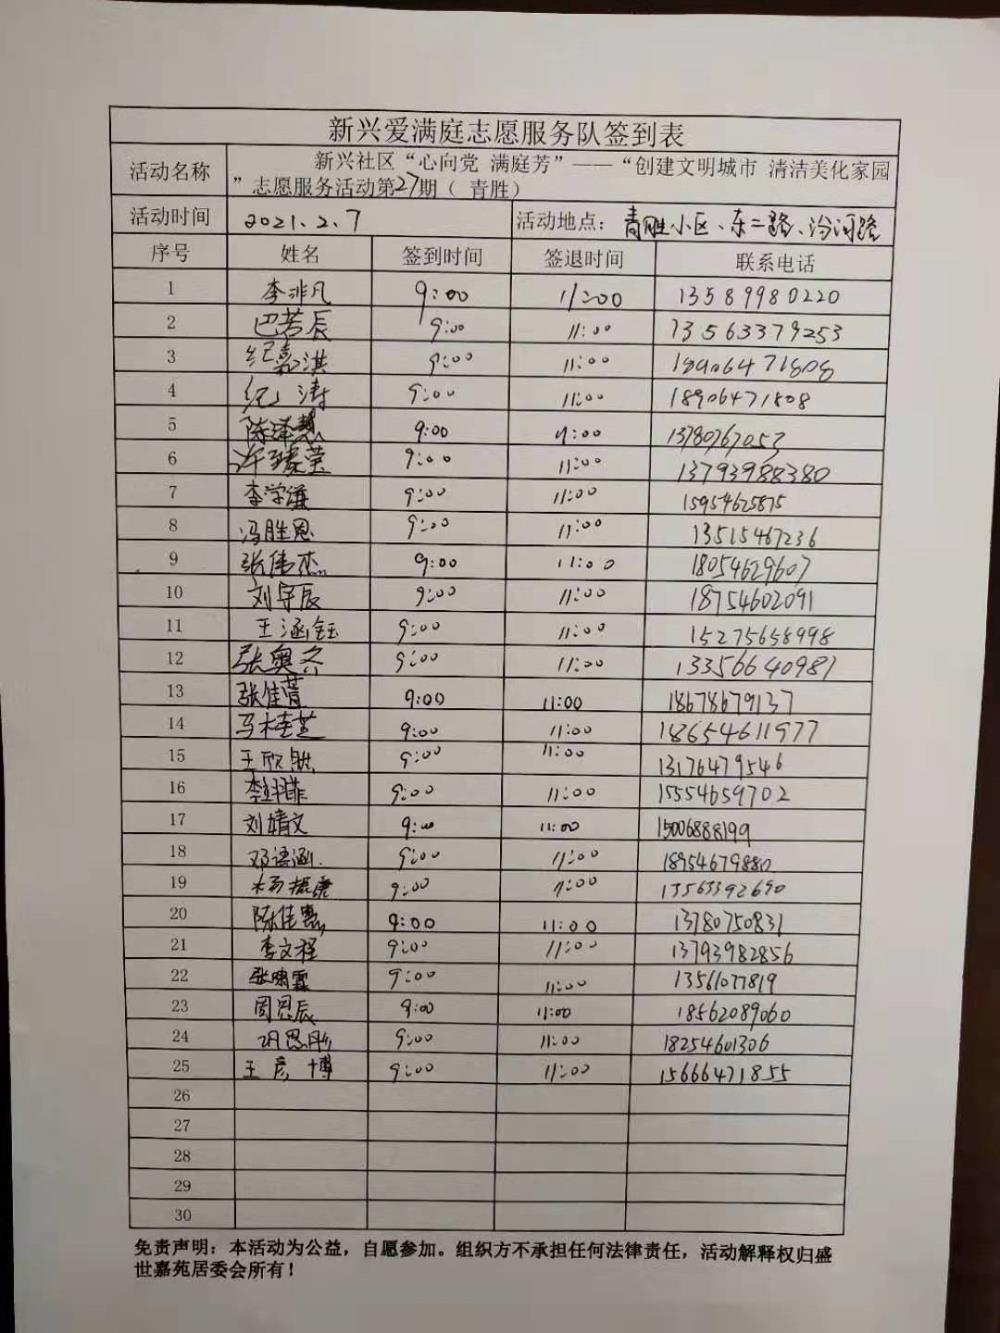 新兴爱满庭志愿服务队签到表
活动名称 新兴社区“心向党 满庭芳”——“创建文明城市 清洁美化家园
”志愿服务活动第27期（ 青胜）
活动时间 2021.2.7 活动地点： 青胜小区、东二路、汾河路
序号 姓名 签到时间 签退时间 联系电话
1 李非凡 9:00 11:00 13589980220
2 巴芳辰 9:00 11:00 13563379253
3 纪嘉淇 9:00 11:00 18906471808
4 纪涛 9:00 11:00 18906471808
5 陈泽慧 9:00 11:00 13780767053
6 许臻莹 9:00 11:00 13793988380
7 李学谦 9:00 11:00 15954625875
8 冯胜恩 9:00 11:00 13515467236
9 张伟杰 9:00 11:00 18054629607
10 刘宇辰 9:00 11:00 18754602091
11 王涵钰 9:00 11:00 15275658998
12 张奥冬 9:00 11:00 13356640981
13 张佳菁 9:00 11:00 18678679137
14 马桂芝 9:00 11:00 18654611977
15 王欣 9:00 11:00 13176479546
16 李菲 9:00 11:00 15554659702
17 刘婧文 9:00 11:00 15006888199
18 邓语涵 9:00 11:00 18954679880
19 杨振康 9:00 11:00 13563392690
20 陈佳惠 9:00 11:00 13780750831
21 李文程 9:00 11:00 13793982856
22 张啸霖 9:00 11:00 13561077819
23 周恩辰 9:00 11:00 18562089060
24 巩恩彤 9:00 11:00 18254601306
25 王彦博 9:00 11:00 15666471855
26
27
28
29
30
免责声明：本活动为公益，自愿参加。组织方不承担任何法律责任，活动解释权归盛
世嘉苑居委会所有！